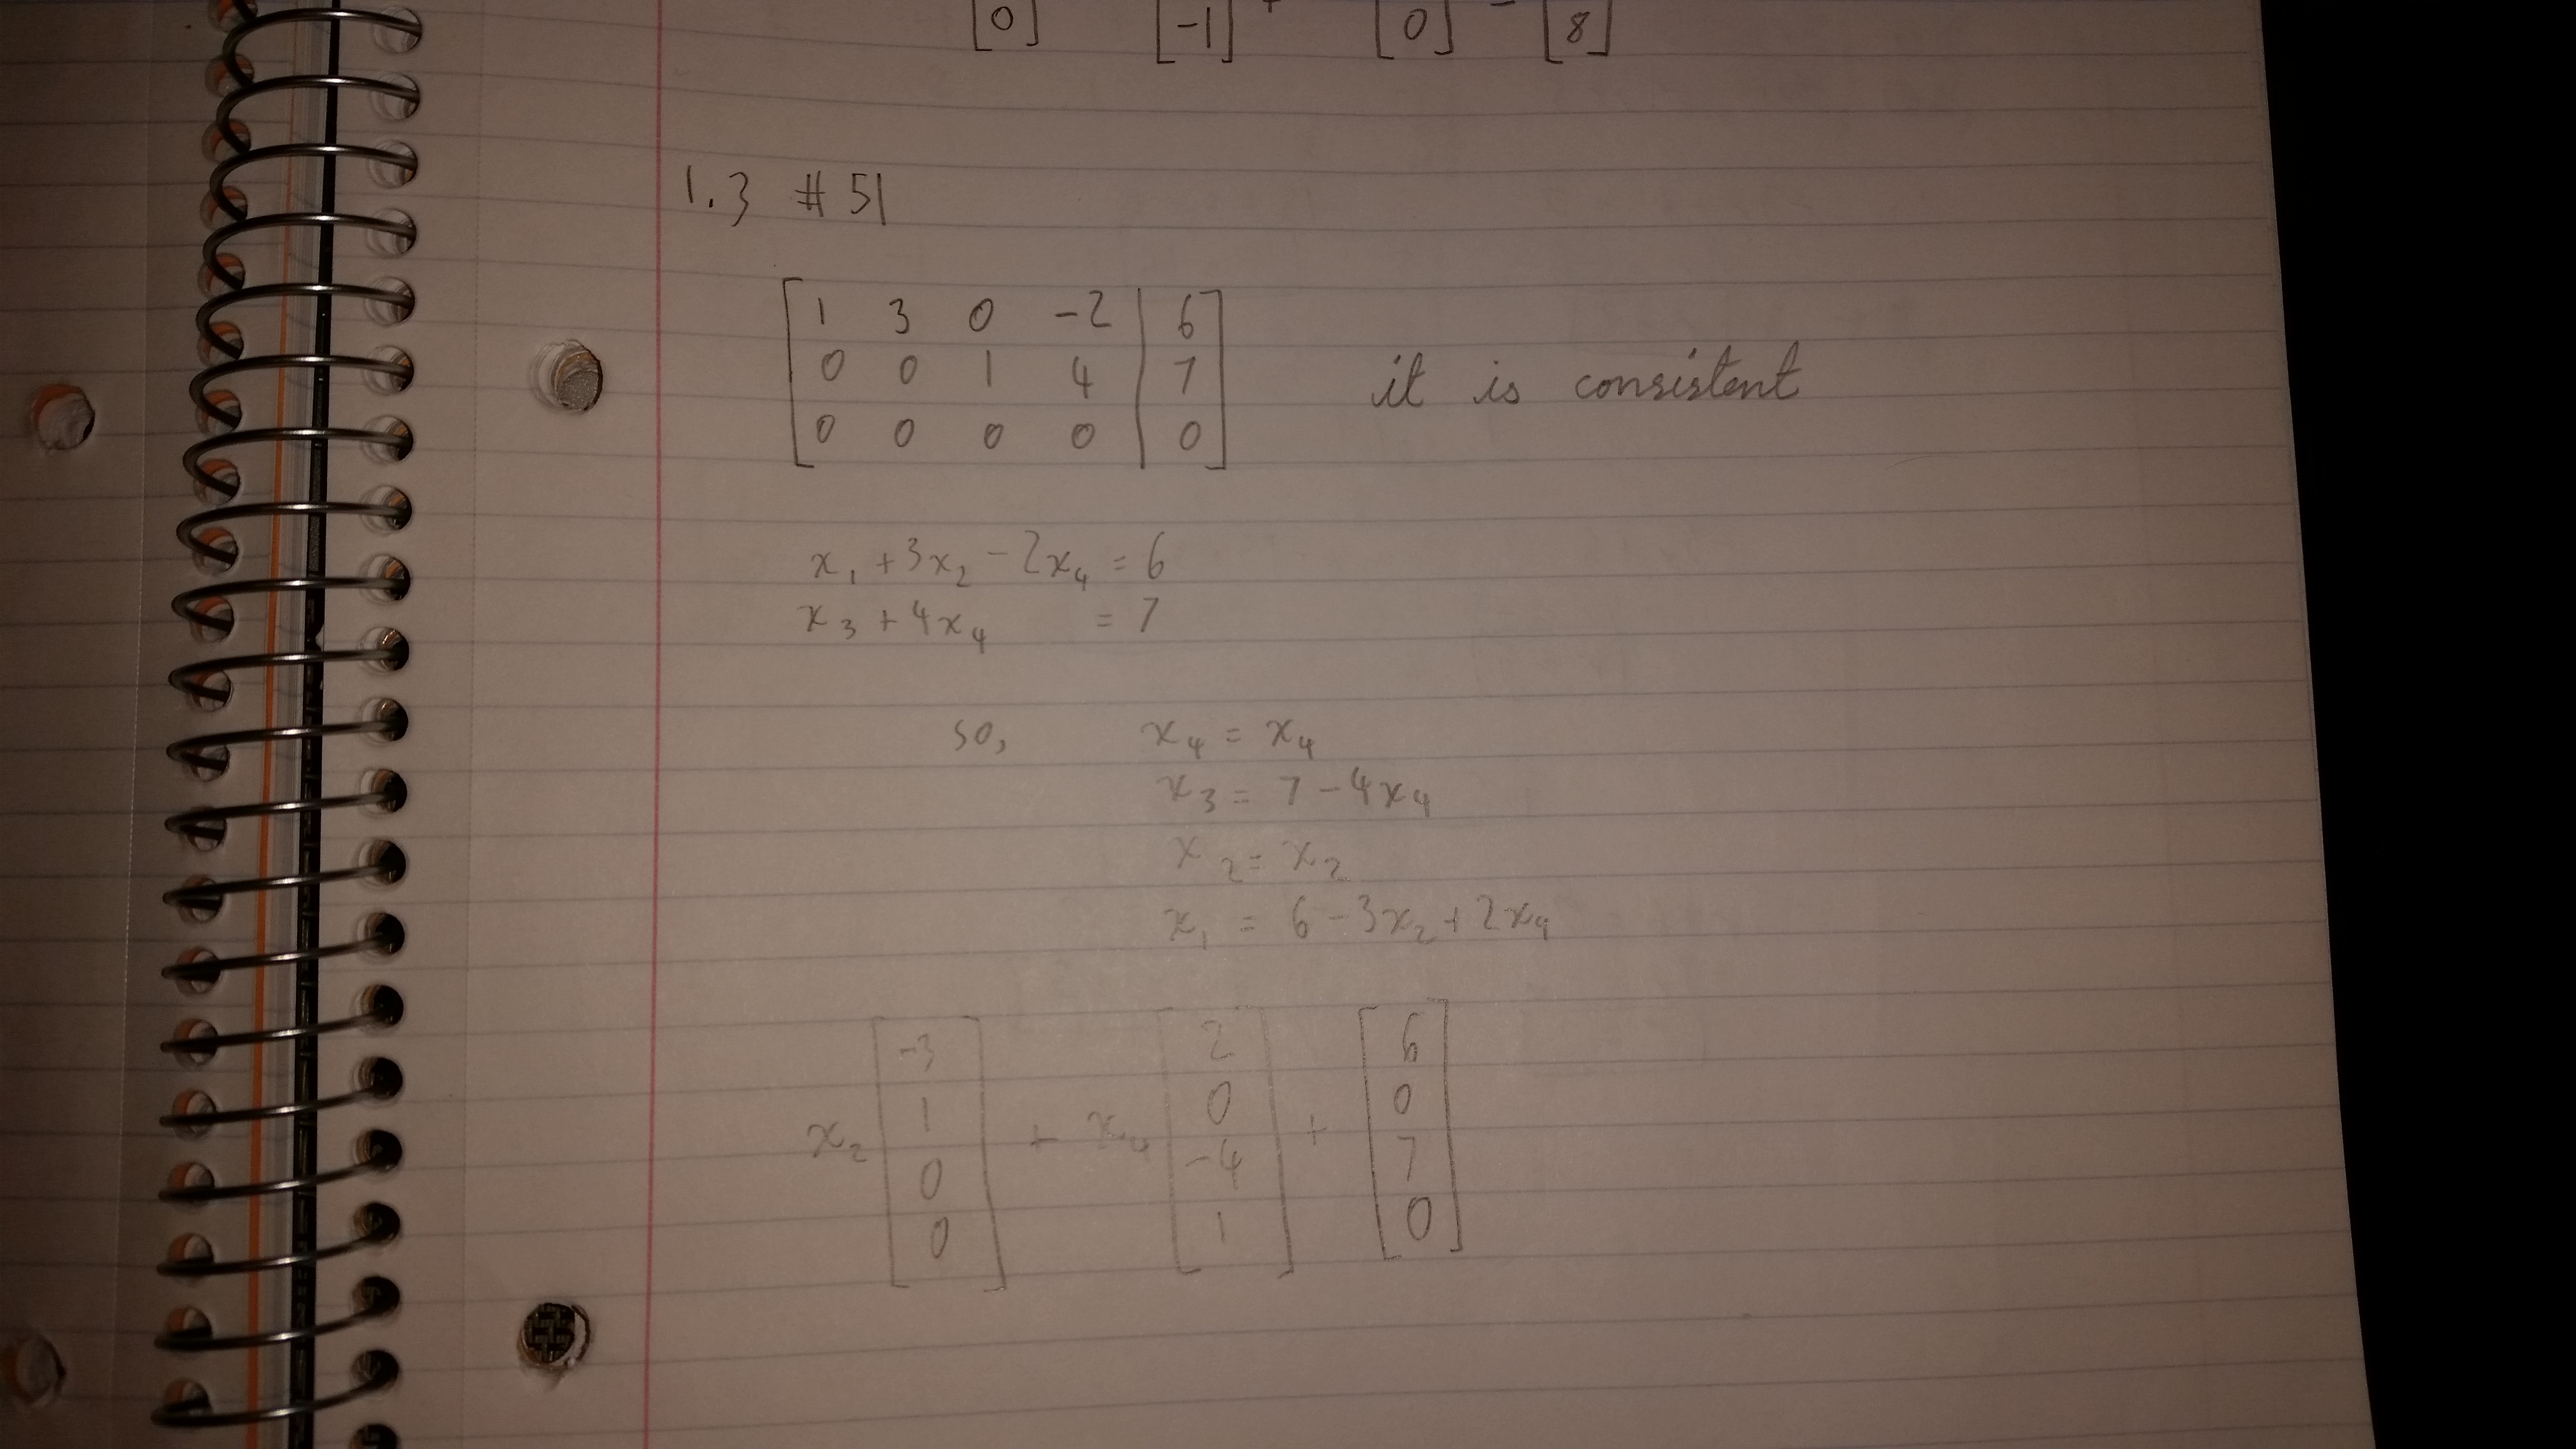 [0] [-1] + [0] - [8]
1.3 # 51
1 3 0 -2 | 6
0 0 1 4 | 7 it is consistent
0 0 0 0 | 0
x₁ + 3x₂ - 2x₄ = 6
x₃ + 4x₄ = 7
so, x₄ = x₄
x₃ = 7 - 4x₄
x₂ = x₂
x₁ = 6 - 3x₂ + 2x₄
-3 2 6
1 0 0
x₂ + x₄ +
0 -4 7
0 1 0